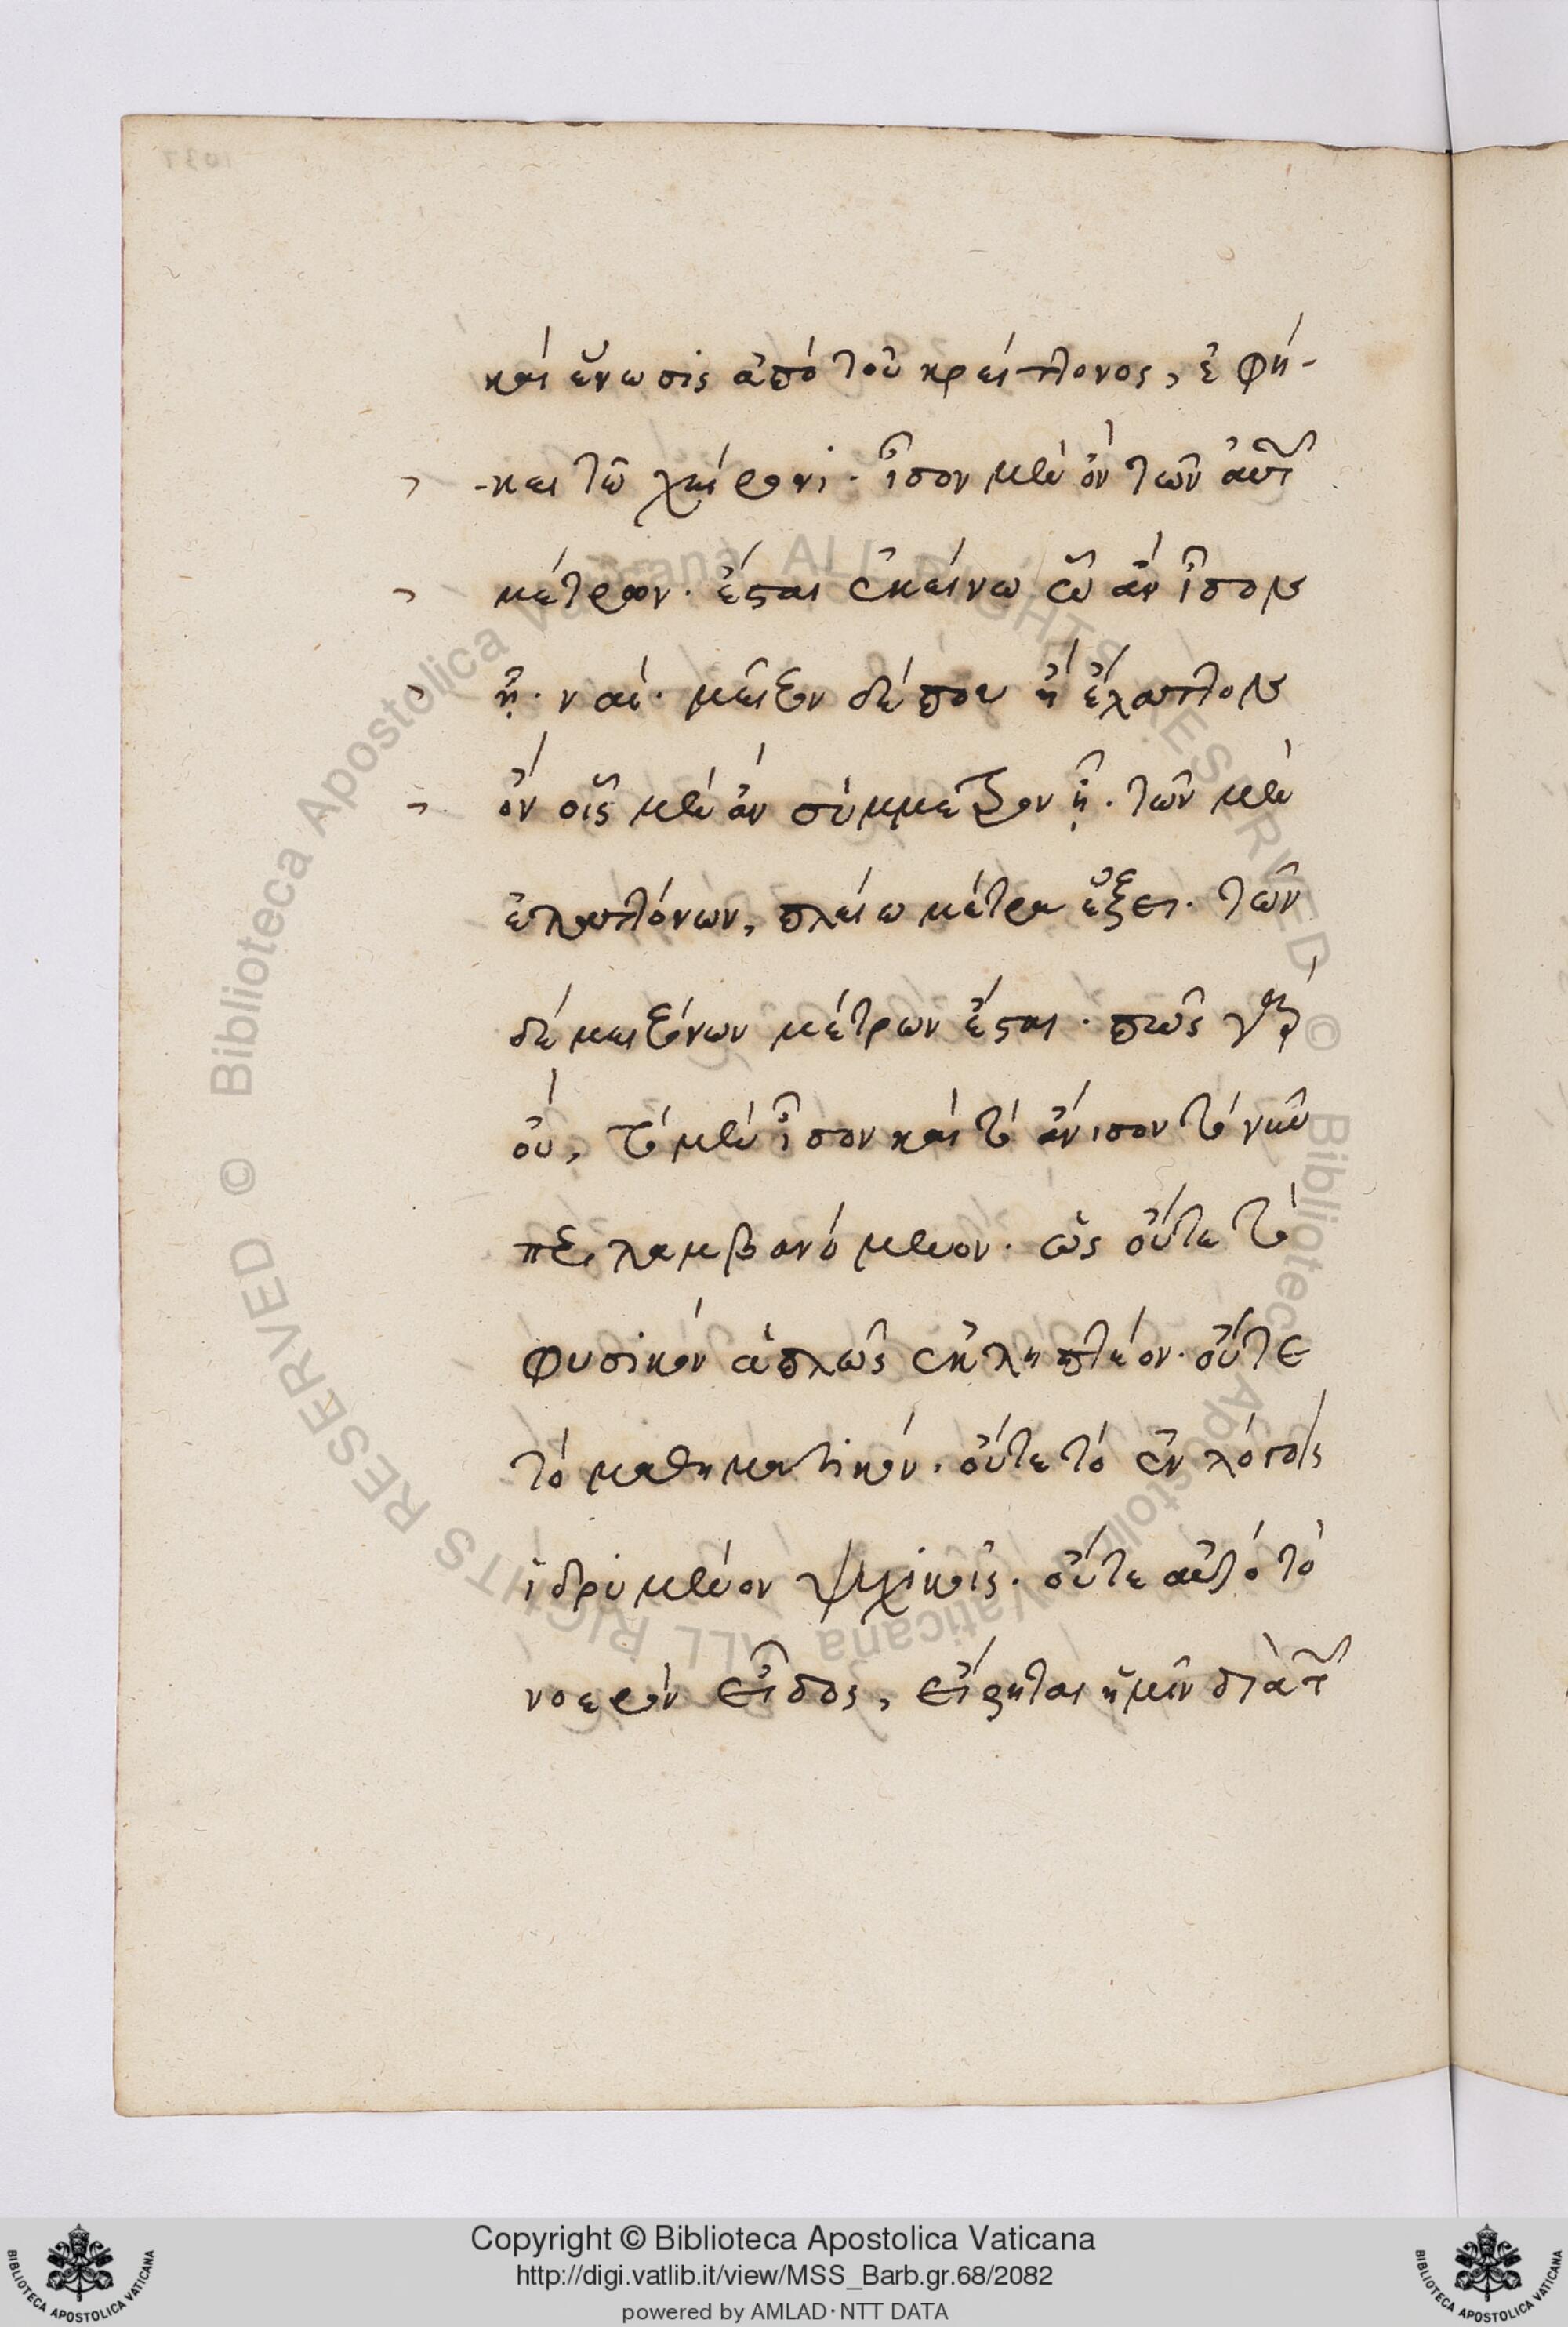 καὶ ἕνωσις ἀπὸ τοῦ κρείττονος, ἐφή-
-κει τῶ χείρονι· ἴσον μὲν ὂν τῶν αὐτ
μέτρον· ἔσται ἐκείνω ὧ ἂν ἴσον
ἦ· ναί· μεῖζον δέ που ἢ ἔλαττον
ὂν οἷς μὲν ἂν σύμμετρον ἦ· τῶν μὲν
ἐλαττόνων, πλείω μέτρα ἕξει· τῶν
δὲ μειζόνων μέτρων ἔσται· πῶς γὰρ
οὔ, τὸ μὲν ἴσον καὶ τὸ ἄνισον τὸ νῦν
λαμβανόμενον· ὡς οὔτε τὸ
φυσικὸν ἁπλῶς ἐκληπτέον· οὔτε
τὸ μαθηματικόν· οὔτε τὸ ἐν λόγοις
ἱδρυμένον ψυχικοῖς· οὔτε αὐτὸ τὸ
νοερὸν εἶδος, εἴρηται ἡμῖν διὰ τ
Copyright © Biblioteca Apostolica Vaticana
http://digi.vatlib.it/view/MSS_Barb.gr.68/2082
powered by AMLAD·NTT DATA
BIBLIOTECA APOSTOLICA VATICANA
BIBLIOTECA APOSTOLICA VATICANA
© Biblioteca Apostolica Vaticana ALL RIGHTS RESERVED
© Biblioteca Apostolica Vaticana ALL RIGHTS RESERVED